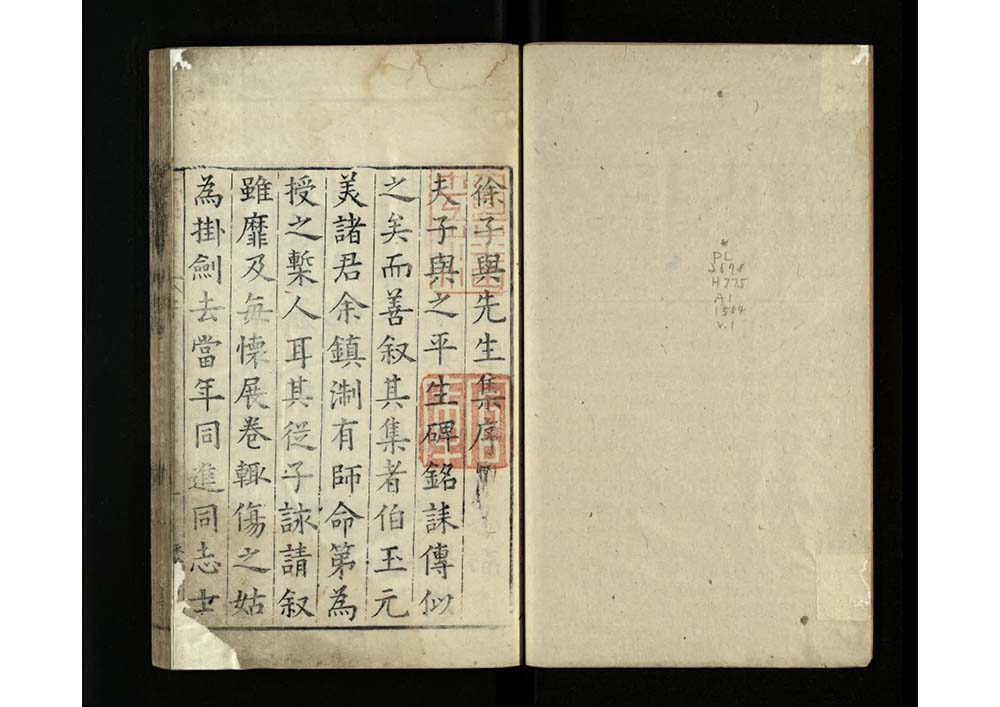 徐子與先生集序
夫子與之平生碑銘誄傳似
之矣而善叙其集者伯玉元
美諸君余鎮淛有師命第為
授之槧人耳其從子詠請叙
雖靡及每懷展卷輙傷之姑
為掛劍去當年同進同志士
*
PL
2698
H775
A1
1584
v.1